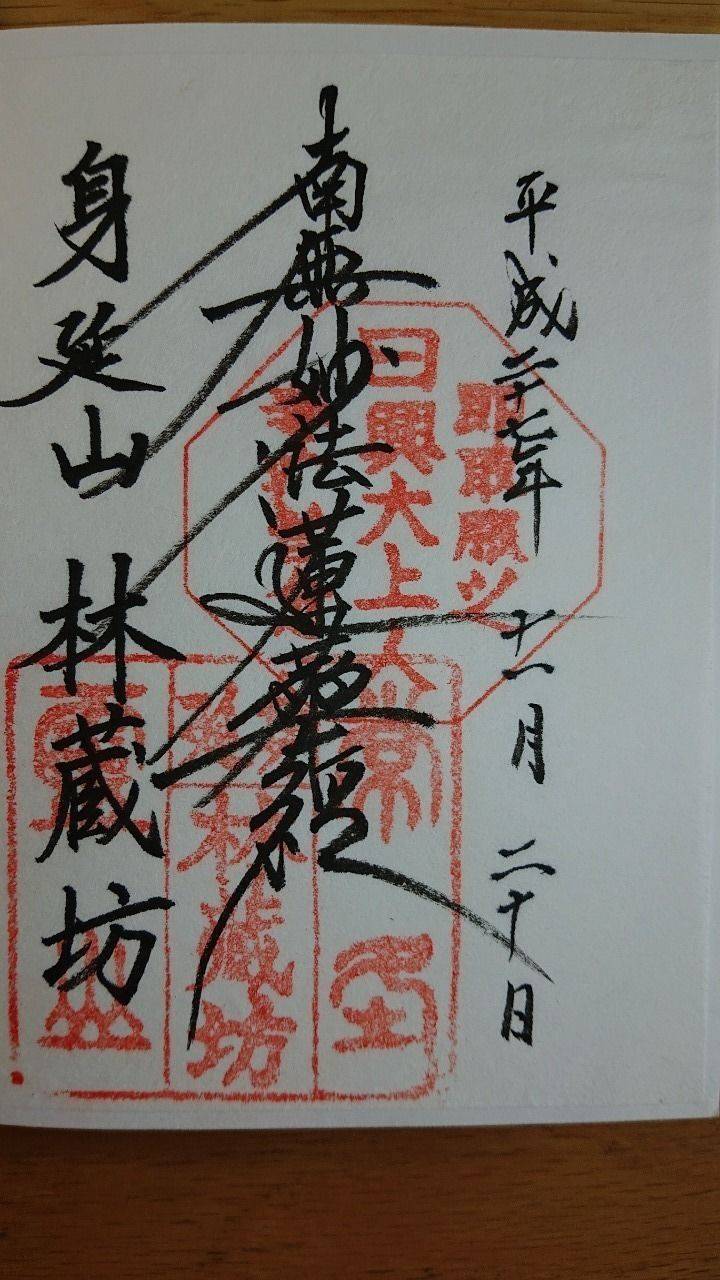 平成二十七年 十一月 二十日
南無妙法蓮華経
身延山 林蔵坊
日興大上人
林蔵坊